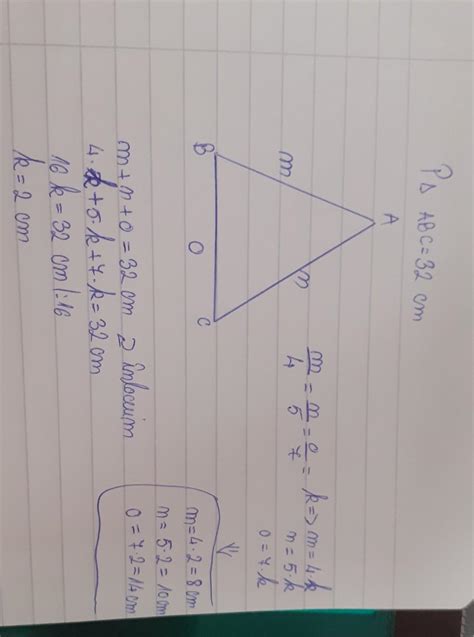 P△ ABC = 32 cm
A
m
n
B
O
C
m/4 = m/5 = o/7 = k => m = 4·k
n = 5·k
o = 7·k
m + n + o = 32 cm => înlocuim
4·k + 5·k + 7·k = 32 cm
16 k = 32 cm |:16
k = 2 cm
m = 4·2 = 8 cm
n = 5·2 = 10 cm
o = 7·2 = 14 cm